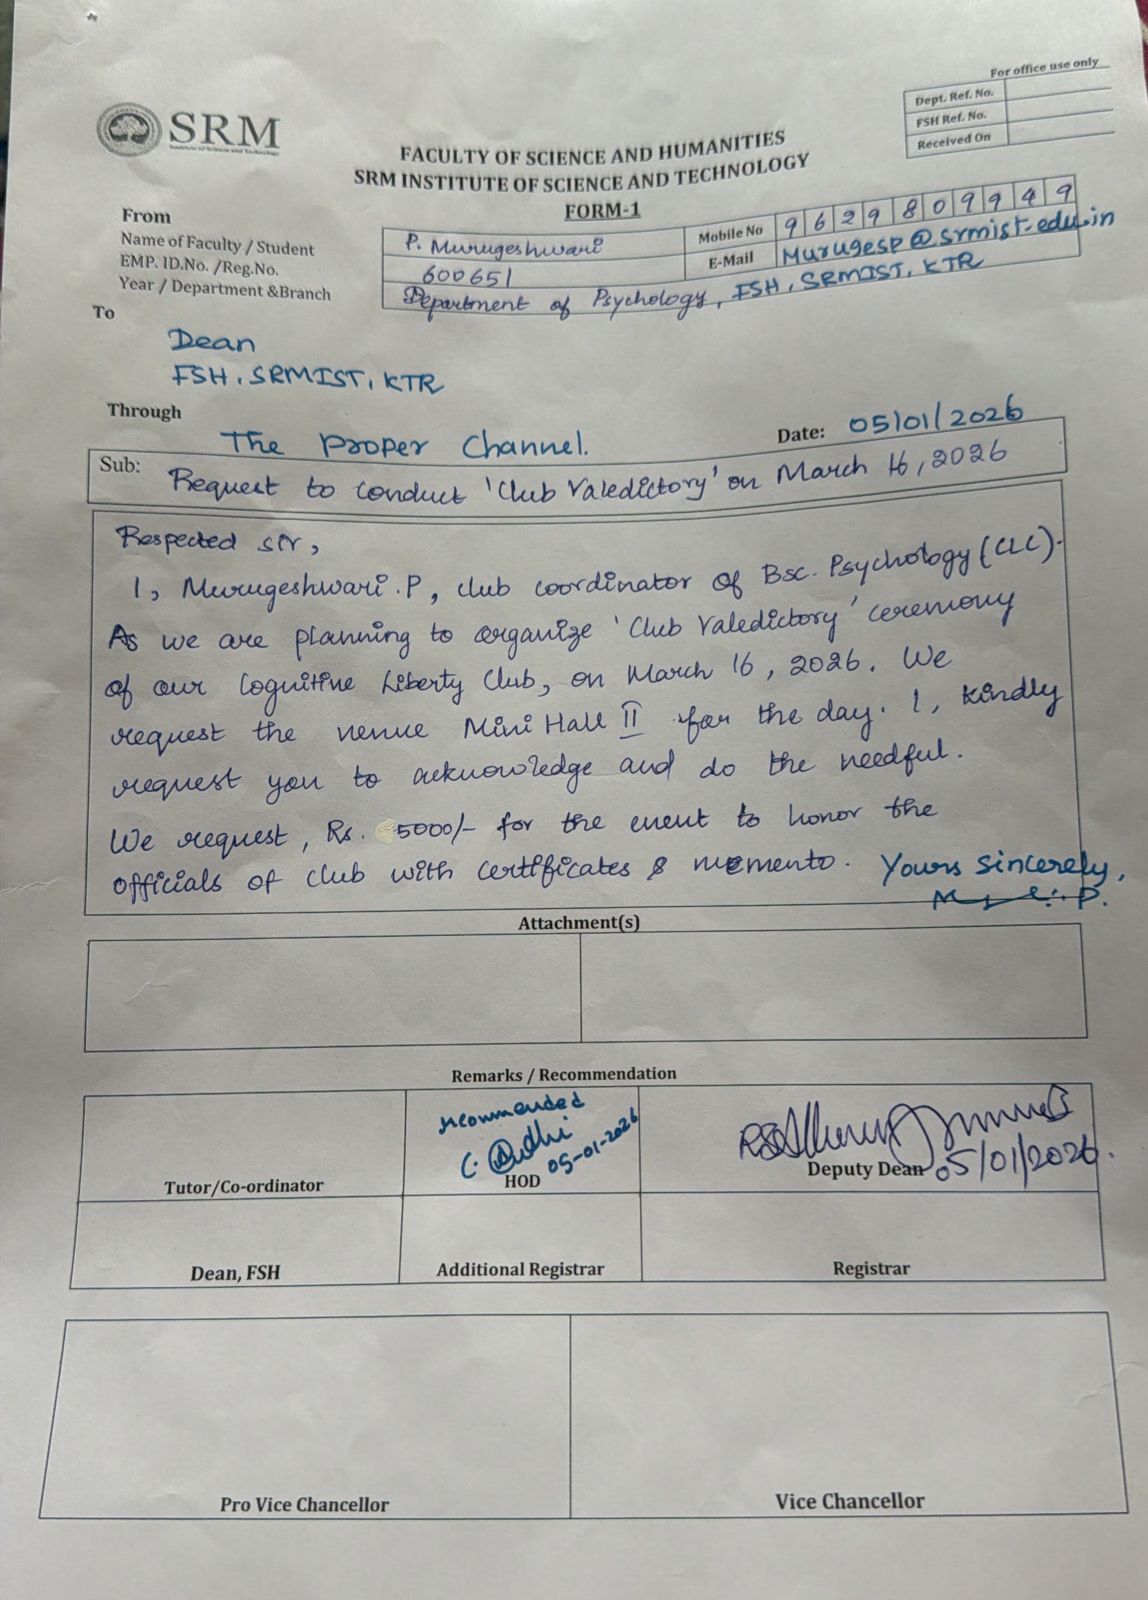 For office use only
Dept. Ref. No.
FSH Ref. No.
Received On
SRM
Institute of Science and Technology
FACULTY OF SCIENCE AND HUMANITIES
SRM INSTITUTE OF SCIENCE AND TECHNOLOGY
FORM-1
From
Name of Faculty / Student P. Murugeshwari Mobile No 9629809949
EMP. ID.No. /Reg.No. 600651 E-Mail Murugesp@srmist.edu.in
Year / Department &Branch Department of Psychology, FSH, SRMIST, KTR
To
Dean
FSH, SRMIST, KTR
Through
The Proper Channel. Date: 05/01/2026
Sub: Request to conduct 'Club Valedictory' on March 16, 2026
Respected sir,
I, Murugeshwari.P, club coordinator of Bsc. Psychology (CLC).
As we are planning to organize 'Club Valedictory' ceremony
of our Cognitive Liberty Club, on March 16, 2026. We
request the venue Mini Hall II for the day. I, kindly
request you to acknowledge and do the needful.
We request, Rs. 5000/- for the event to honor the
officials of club with certificates & memento. Yours Sincerely,
Attachment(s)
Remarks / Recommendation
recommended
05-01-2026
05/01/2026.
Tutor/Co-ordinator HOD Deputy Dean
Dean, FSH Additional Registrar Registrar
Pro Vice Chancellor Vice Chancellor